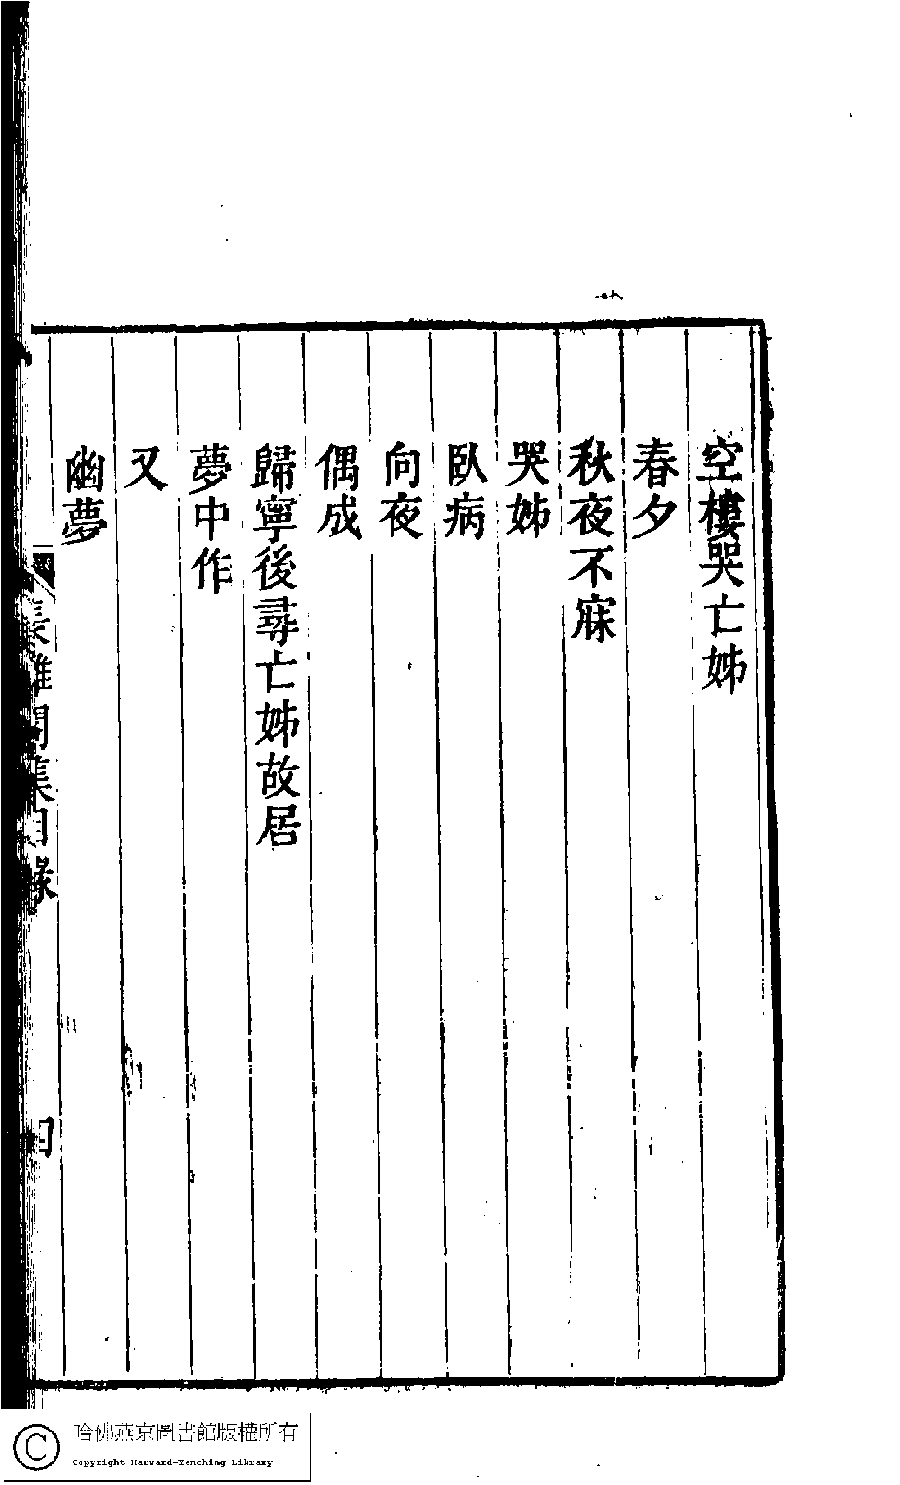 空樓哭亡姊
春夕
秋夜不寐
哭姊
臥病
向夜
偶成
歸寧後尋亡姊故居
夢中作
又
幽夢
長離閣集目錄
四
哈佛燕京圖書館版權所有
Copyright Harvard-Yenching Library